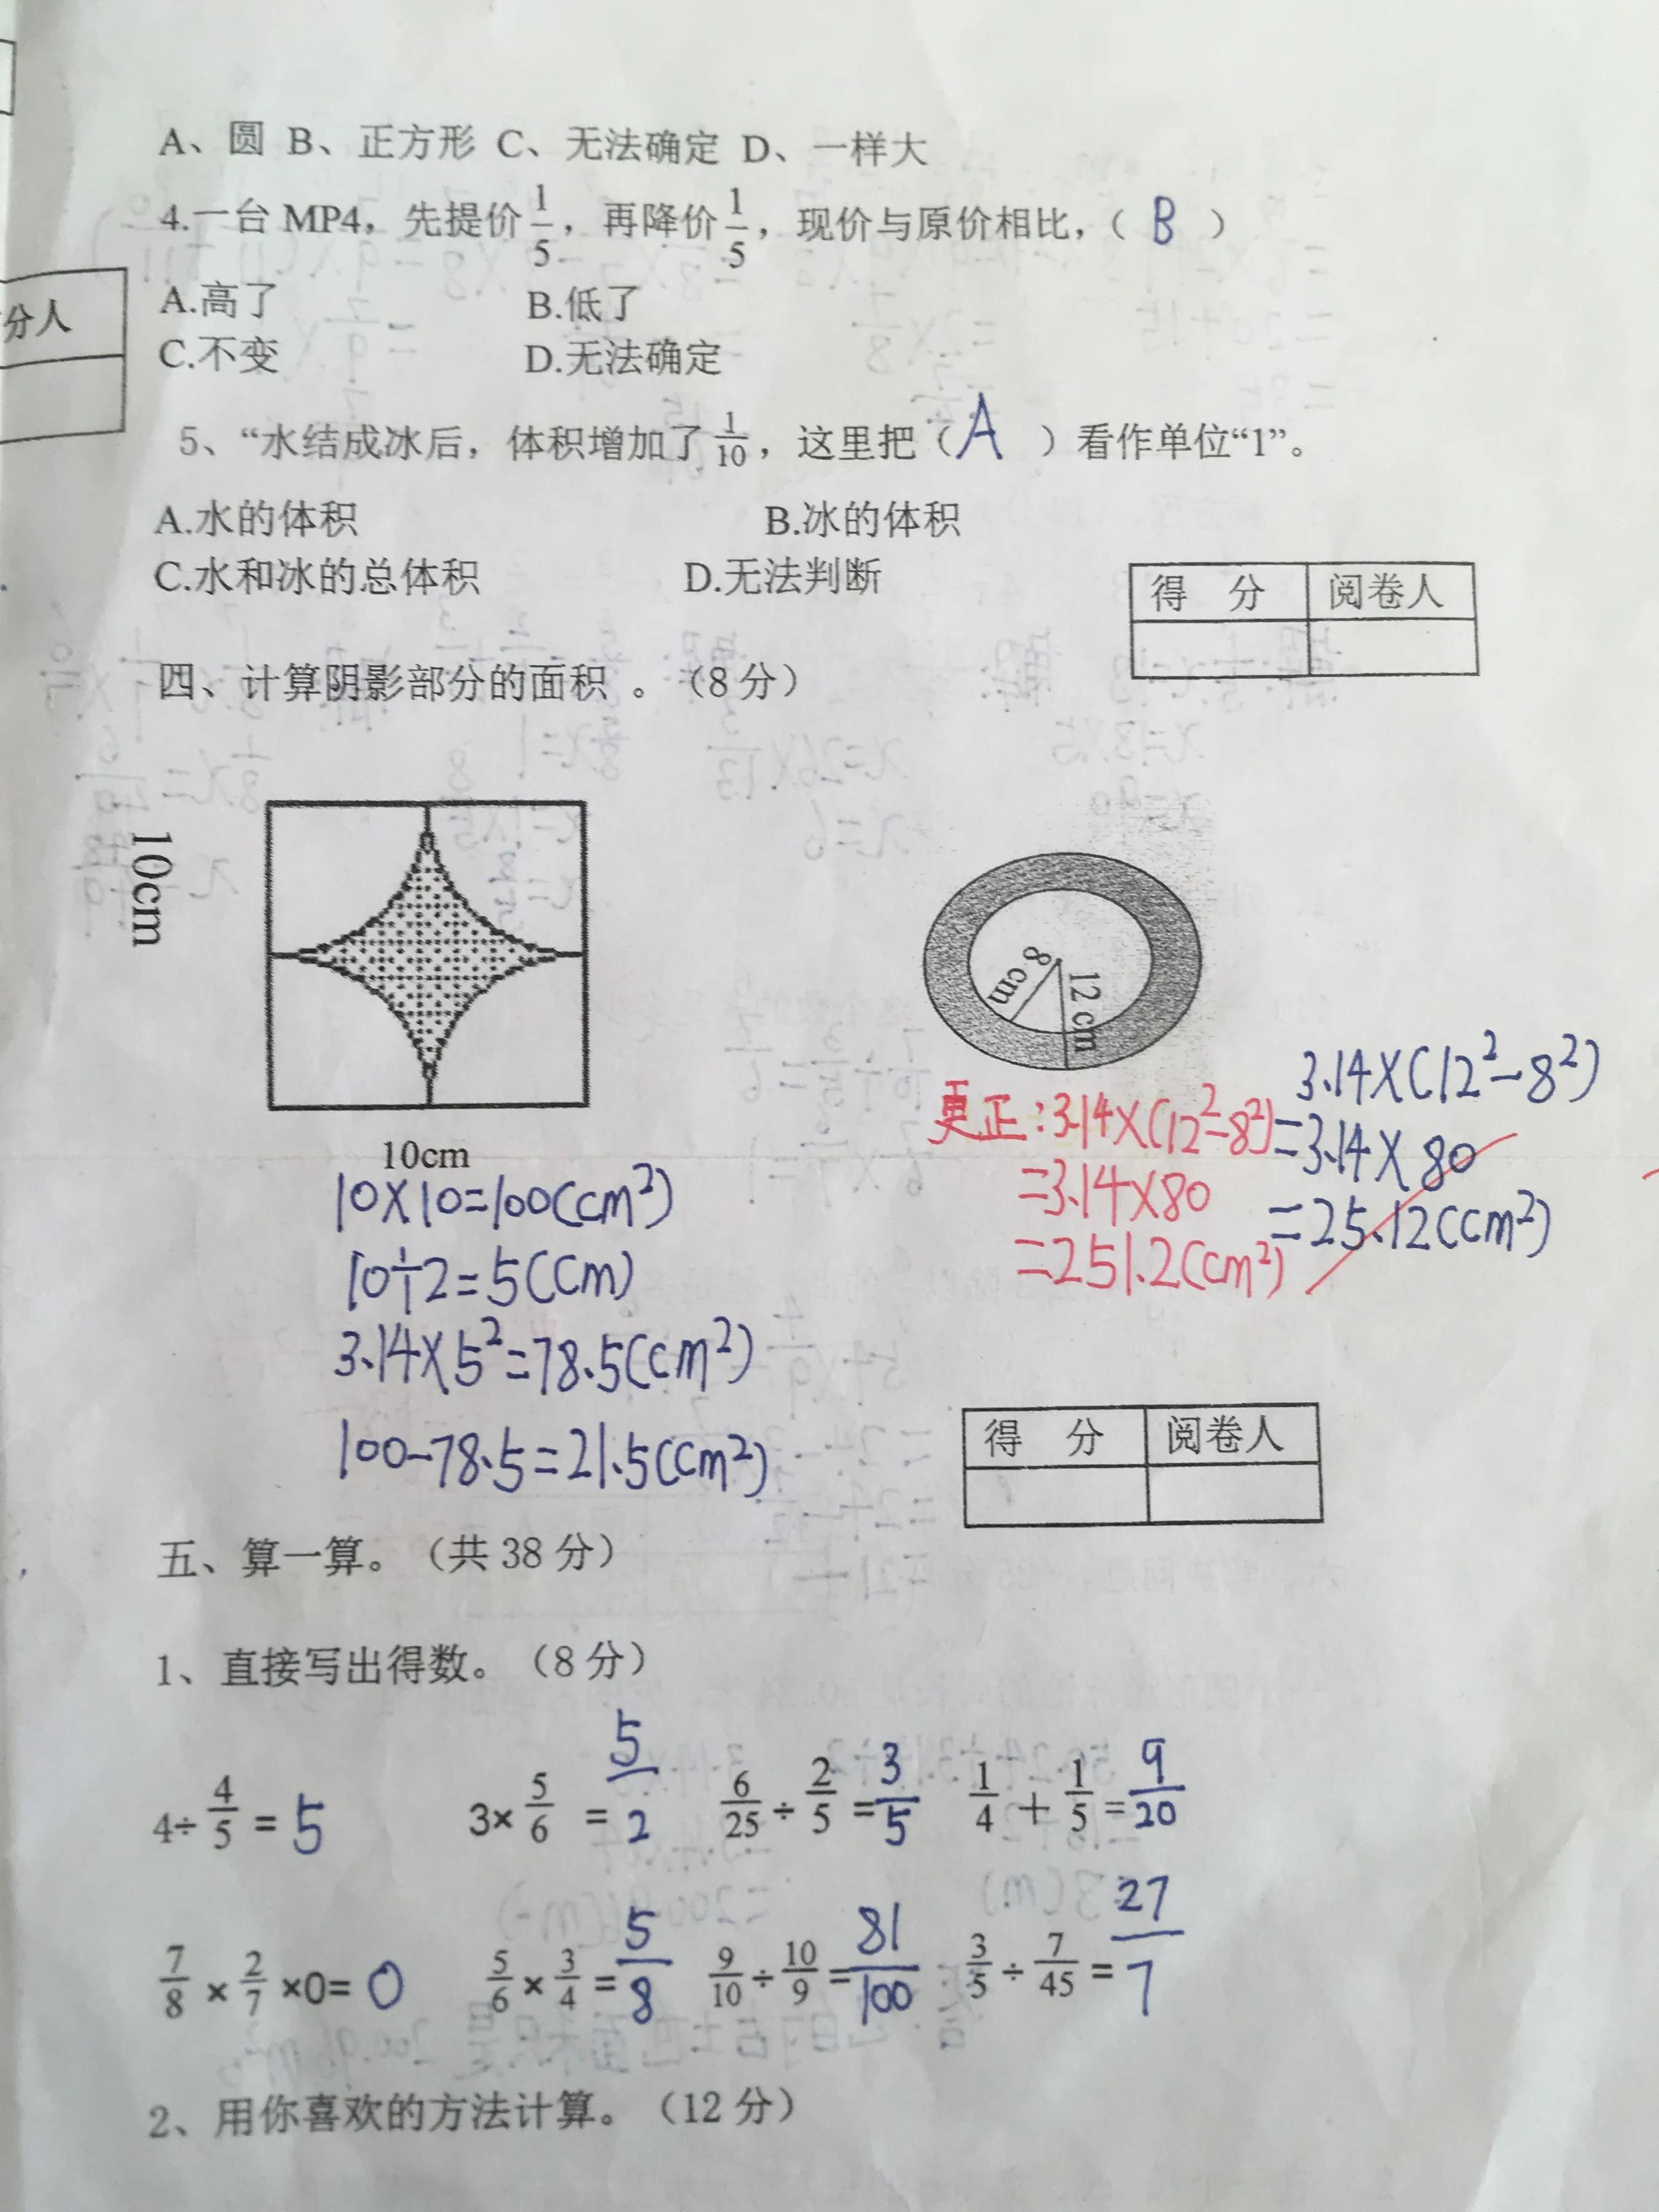 A、圆 B、正方形 C、无法确定 D、一样大
4.一台 MP4，先提价1/5，再降价1/5，现价与原价相比，（ B ）
分人
A.高了 B.低了
C.不变 D.无法确定
5、“水结成冰后，体积增加了1/10，这里把（ A ）看作单位“1”。
A.水的体积 B.冰的体积
C.水和冰的总体积 D.无法判断
得 分 阅卷人
四、计算阴影部分的面积 。（8 分）
10cm
10cm
8 cm
12 cm
10×10=100(cm²)
10÷2=5(cm)
3.14×5²=78.5(cm²)
100-78.5=21.5(cm²)
更正：3.14×(12²-8²)
=3.14×80
=251.2(cm²)
3.14×(12²-8²)
=3.14×80
=25.12(cm²)
得 分 阅卷人
五、算一算。（共 38 分）
1、直接写出得数。（8 分）
4÷4/5=5 3×5/6=5/2 6/25÷2/5=3/5 1/4+1/5=9/20
7/8×2/7×0=0 5/6×3/4=5/8 9/10÷10/9=81/100 3/5÷7/45=27/7
2、用你喜欢的方法计算。（12 分）